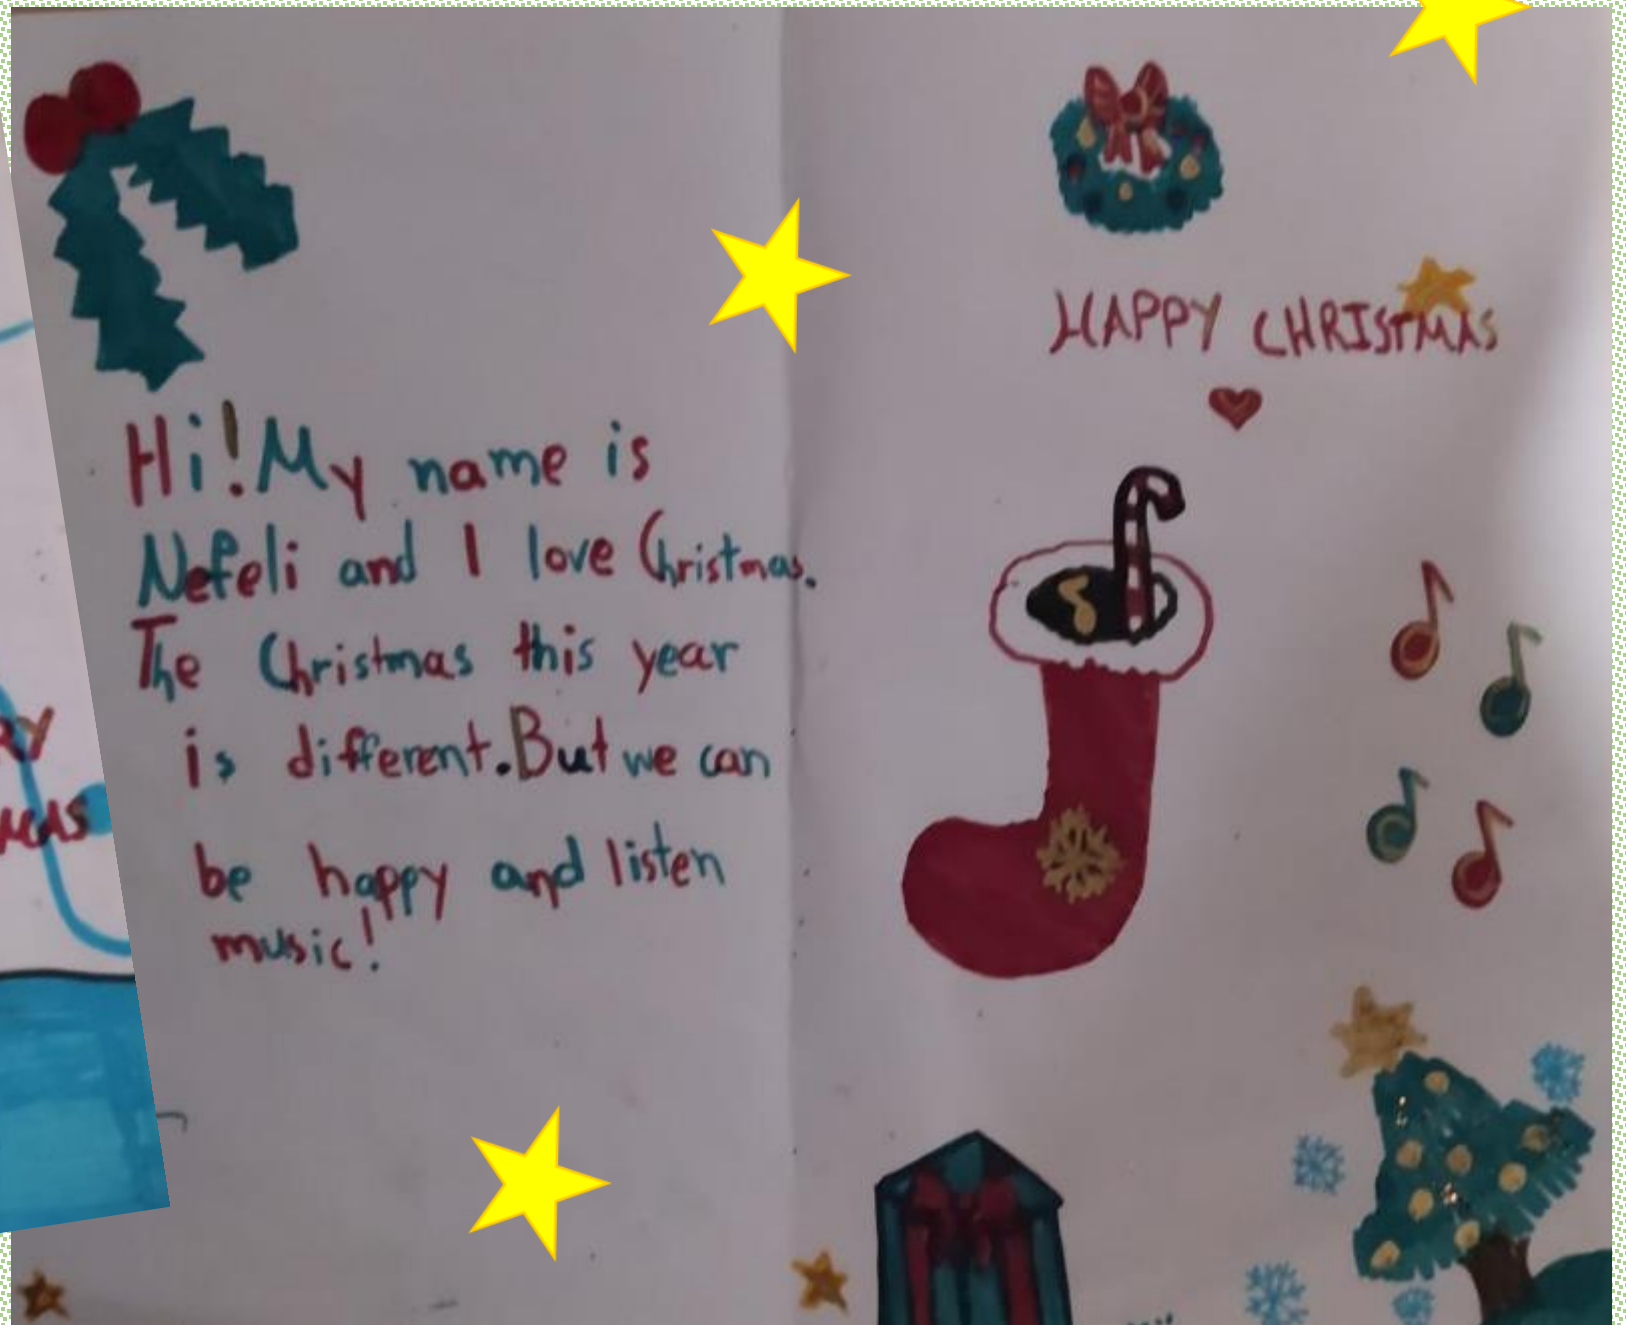 Hi! My name is
Nefeli and I love Christmas.
The Christmas this year
is different. But we can
be happy and listen
music!
HAPPY CHRISTMAS